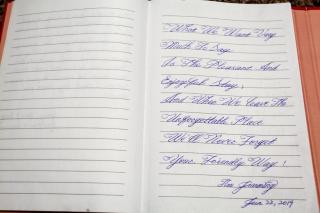 What We Want Very
Much To Say
Is The Pleasant And
Enjoyful Stay,
And When We Leave The
Unforgettable Place
We'll Never Forget
Your Friendly Way!
Jun 22, 2019